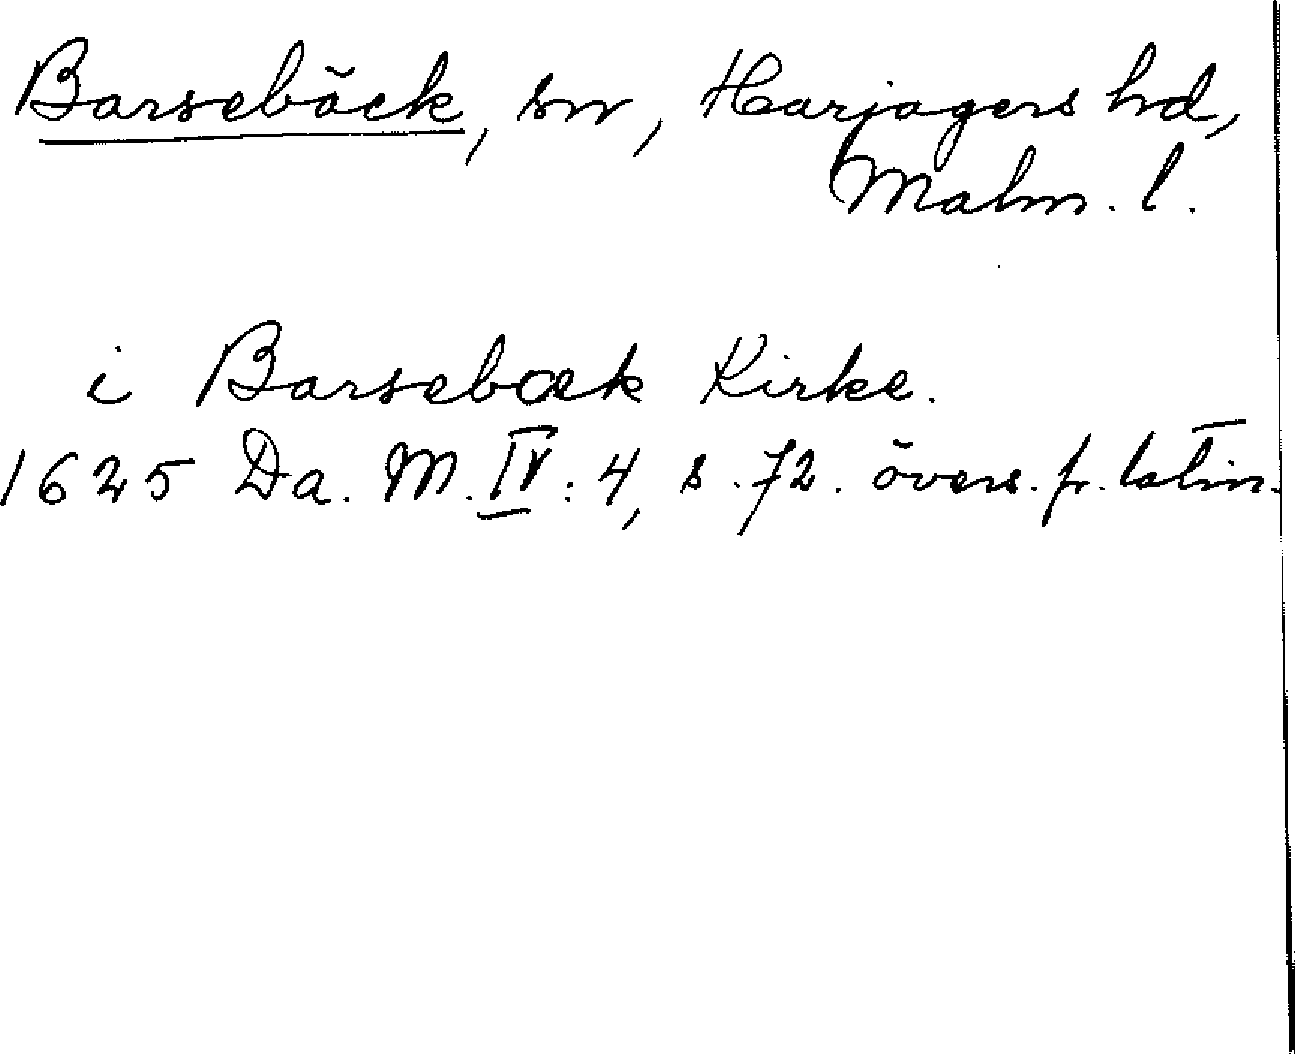 Barsebäck, sn, Harjagers hd,
Malm. l.
i Barsebæk Kirke.
1625 Da. M. IV: 4, s. 72. övers. fr. latin.